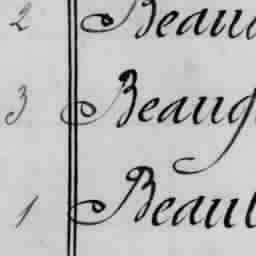 2 Beau
3 Beaug
1 Beaul